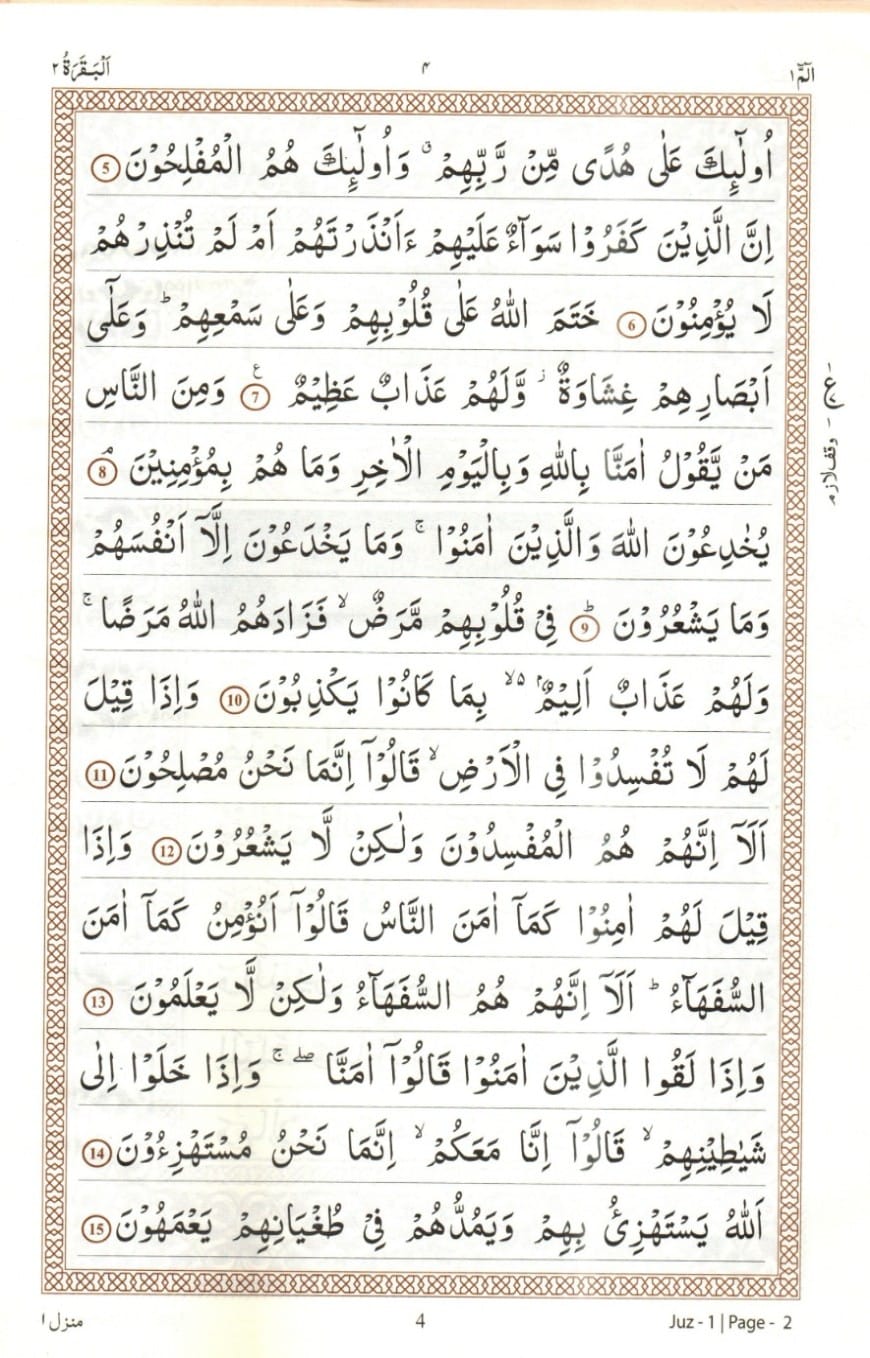 الٓمّٓ ١
۴
اَلْبَقَرَةُ ٢
اُولٰٓئِكَ عَلٰى هُدًى مِّنْ رَّبِّهِمْ ۗ وَاُولٰٓئِكَ هُمُ الْمُفْلِحُوْنَ 5
اِنَّ الَّذِيْنَ كَفَرُوْا سَوَآءٌ عَلَيْهِمْ ءَاَنْذَرْتَهُمْ اَمْ لَمْ تُنْذِرْهُمْ
لَا يُؤْمِنُوْنَ 6 خَتَمَ اللّٰهُ عَلٰى قُلُوْبِهِمْ وَعَلٰى سَمْعِهِمْ ؕ وَعَلٰٓى
اَبْصَارِهِمْ غِشَاوَةٌ ز وَّلَهُمْ عَذَابٌ عَظِيْمٌ ع 7 وَمِنَ النَّاسِ
مَنْ يَّقُوْلُ اٰمَنَّا بِاللّٰهِ وَبِالْيَوْمِ الْاٰخِرِ وَمَا هُمْ بِمُؤْمِنِيْنَ ۘ 8
يُخٰدِعُوْنَ اللّٰهَ وَالَّذِيْنَ اٰمَنُوْا ۚ وَمَا يَخْدَعُوْنَ اِلَّآ اَنْفُسَهُمْ
وَمَا يَشْعُرُوْنَ ؕ 9 فِيْ قُلُوْبِهِمْ مَّرَضٌ ۙ فَزَادَهُمُ اللّٰهُ مَرَضًا ۚ
وَلَهُمْ عَذَابٌ اَلِيْمٌۢ ۙ۬ بِمَا كَانُوْا يَكْذِبُوْنَ 10 وَاِذَا قِيْلَ
لَهُمْ لَا تُفْسِدُوْا فِي الْاَرْضِ ۙ قَالُوْٓا اِنَّمَا نَحْنُ مُصْلِحُوْنَ 11
اَلَآ اِنَّهُمْ هُمُ الْمُفْسِدُوْنَ وَلٰكِنْ لَّا يَشْعُرُوْنَ 12 وَاِذَا
قِيْلَ لَهُمْ اٰمِنُوْا كَمَآ اٰمَنَ النَّاسُ قَالُوْٓا اَنُؤْمِنُ كَمَآ اٰمَنَ
السُّفَهَآءُ ؕ اَلَآ اِنَّهُمْ هُمُ السُّفَهَآءُ وَلٰكِنْ لَّا يَعْلَمُوْنَ 13
وَاِذَا لَقُوا الَّذِيْنَ اٰمَنُوْا قَالُوْٓا اٰمَنَّا ۖ ۚ وَاِذَا خَلَوْا اِلٰى
شَيٰطِيْنِهِمْ ۙ قَالُوْٓا اِنَّا مَعَكُمْ ۙ اِنَّمَا نَحْنُ مُسْتَهْزِءُوْنَ 14
اَللّٰهُ يَسْتَهْزِئُ بِهِمْ وَيَمُدُّهُمْ فِيْ طُغْيَانِهِمْ يَعْمَهُوْنَ 15
وقف لازم
منزل ١
4
Juz - 1 | Page - 2